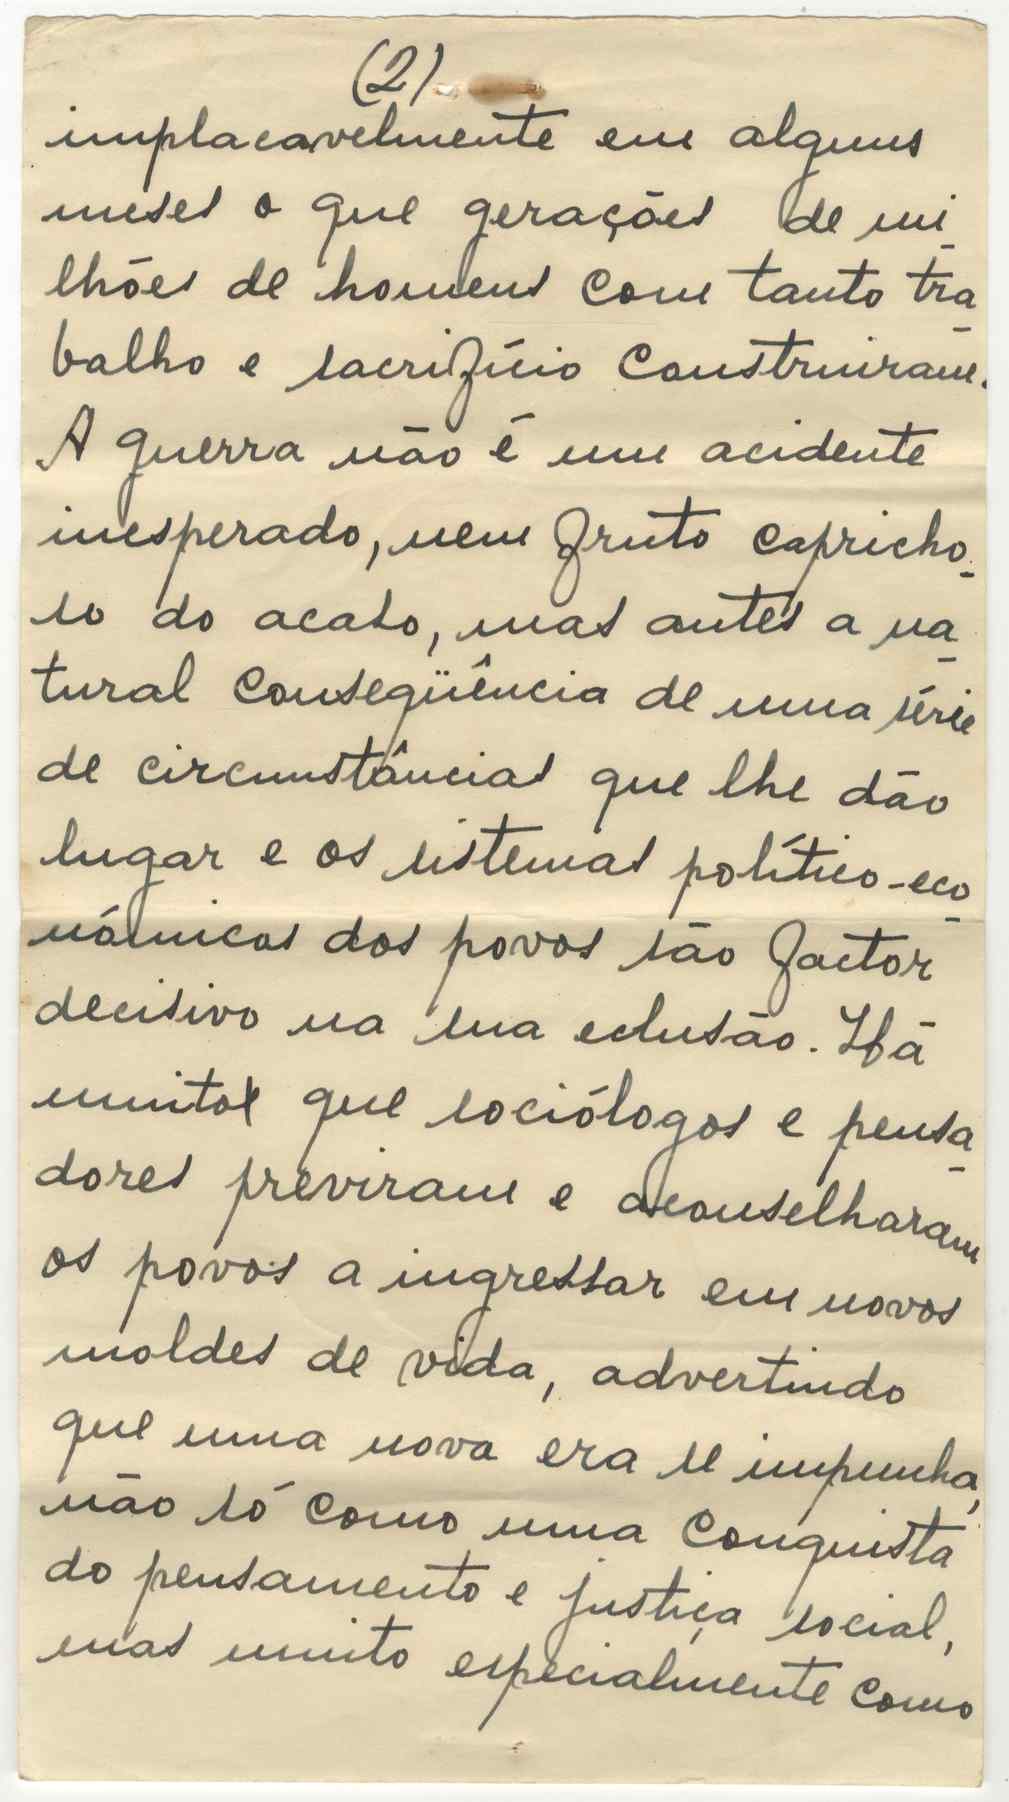 (2)
implacavelmente em alguns
meses o que gerações de mi-
lhões de homens com tanto tra-
balho e sacrifício construiram.
A guerra não é um acidente
inesperado, nem fruto capricho-
so do acaso, mas antes a na-
tural conseqüência de uma série
de circunstâncias que lhe dão
lugar e os sistemas político-eco-
nómicos dos povos são factor
decisivo na sua eclusão. Há
muito que sociólogos e pensa-
dores previram e aconselharam
os povos a ingressar em novos
moldes de vida, advertindo
que uma nova era se impunha,
não só como uma conquista
do pensamento e justiça social,
mas muito especialmente como